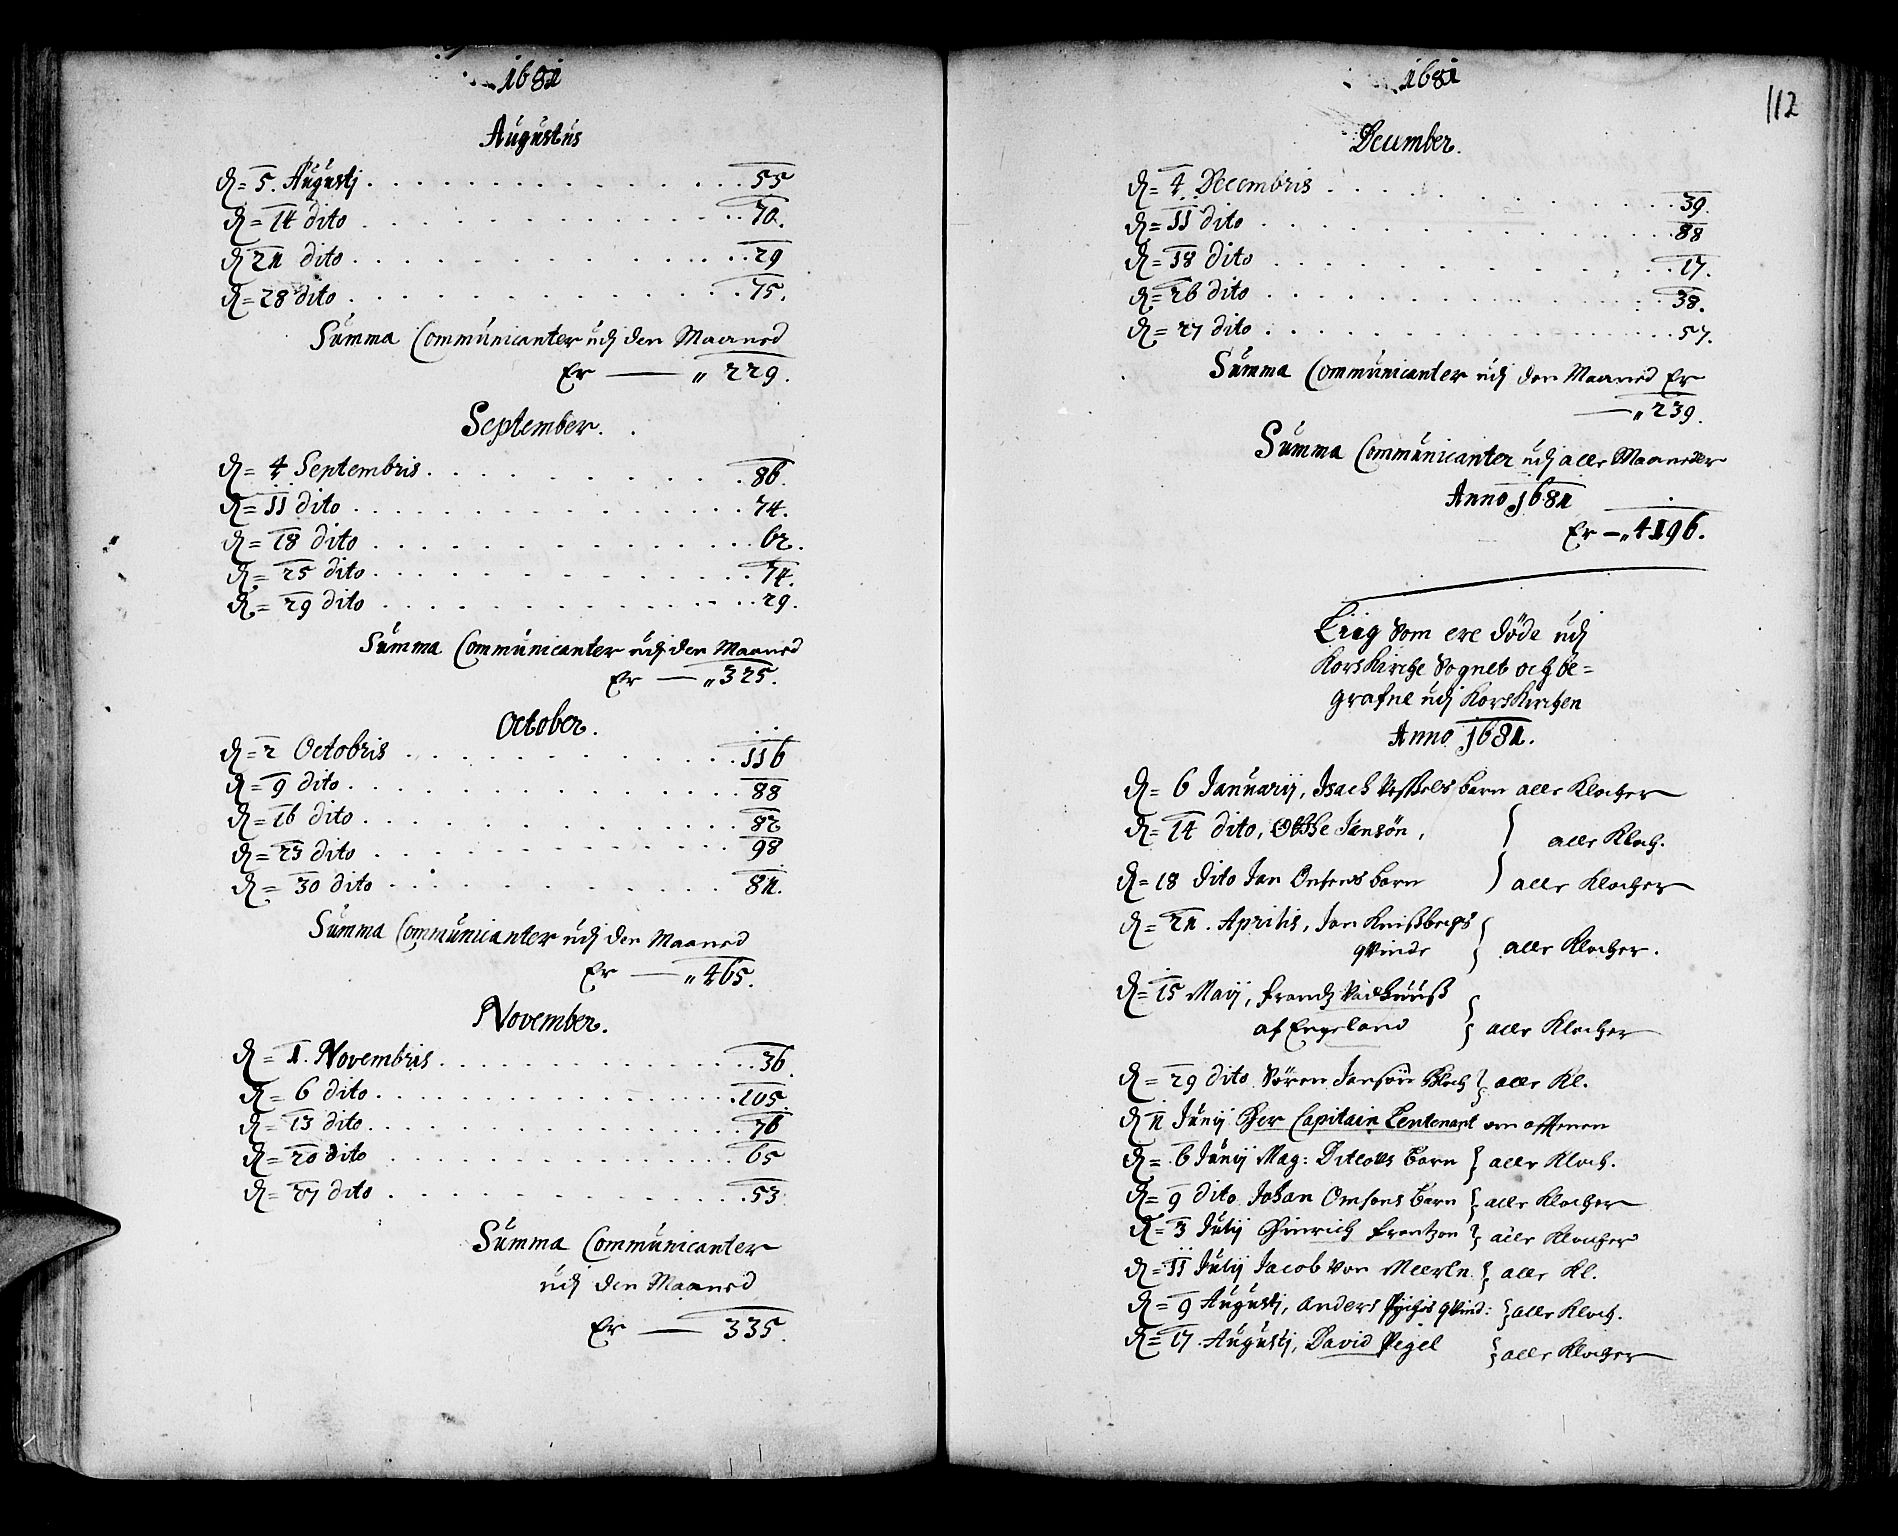 1681
Augustus
D= 5. Augustj . . . 55
D= 14 dito . . . 70.
D 21 dito . . . 29
D= 28 dito . . . 75.
Summa Communicanter udj den Maaned
Er — " 229.
September.
D= 4 Septembris . . . 86.
D= 11 dito . . . 74.
D= 18 dito . . . 62.
D= 25 dito . . . 74.
D= 29 dito . . . 29.
Summa Communicanter udj den Maaned
Er — " 325.
October.
D= 2 Octobris . . . 116
D= 9 dito . . . 88
D= 16 dito . . . 82
D= 23 dito . . . 98
D= 30 dito . . . 81.
Summa Communicanter udj den Maaned
Er — " 465.
November.
D= 1. Novembris . . . 36.
D= 6 dito . . . 105.
D= 13 dito . . . 76
D= 20 dito . . . 65
D= 27 dito . . . 53.
Summa Communicanter
udj den Maaned
Er — 335.
1681
112
December.
D= 4 Decembris . . . 39.
D= 11 dito . . . 88
D= 18 dito . . . 17.
D= 26 dito . . . 38.
D= 27 dito . . . 57.
Summa Communicanter udj den Maaned Er
— " 239.
Summa Communicanter udj alle Maaneder
Anno 1681
Er — " 4196.
Liig som ere døde udj
Korskirche Sognet och be=
grafne udj Korskirchen
Anno 1681.
D= 6 Januarij, Isach barn alle Klocher
D= 14 dito, Jansøn, } alle Kloch.
D= 18 dito Jan barn } alle Klocher
D= 21. Aprilis, Jan
qvinde } alle Klocher.
D= 15 Maij, frandz
af Engeland } alle Klocher
D= 29 dito Søren Jansøn Kloch } alle Kl.
D 2 Junij Her Capitain Leutenant om afftenen
D= 6 Junij Mag: Ditlovs barn } alle Kloch.
D= 9 dito Johan Omsens barn } alle Klocher
D= 3 Julij Hinrich frantzen } alle Klocher
D= 11 Julij Jacob von Meerln } alle Kl.
D= 9 Augustj, Anders qvind: } alle Kloch.
D= 17 Augustj, David Pegel } alle Klocher